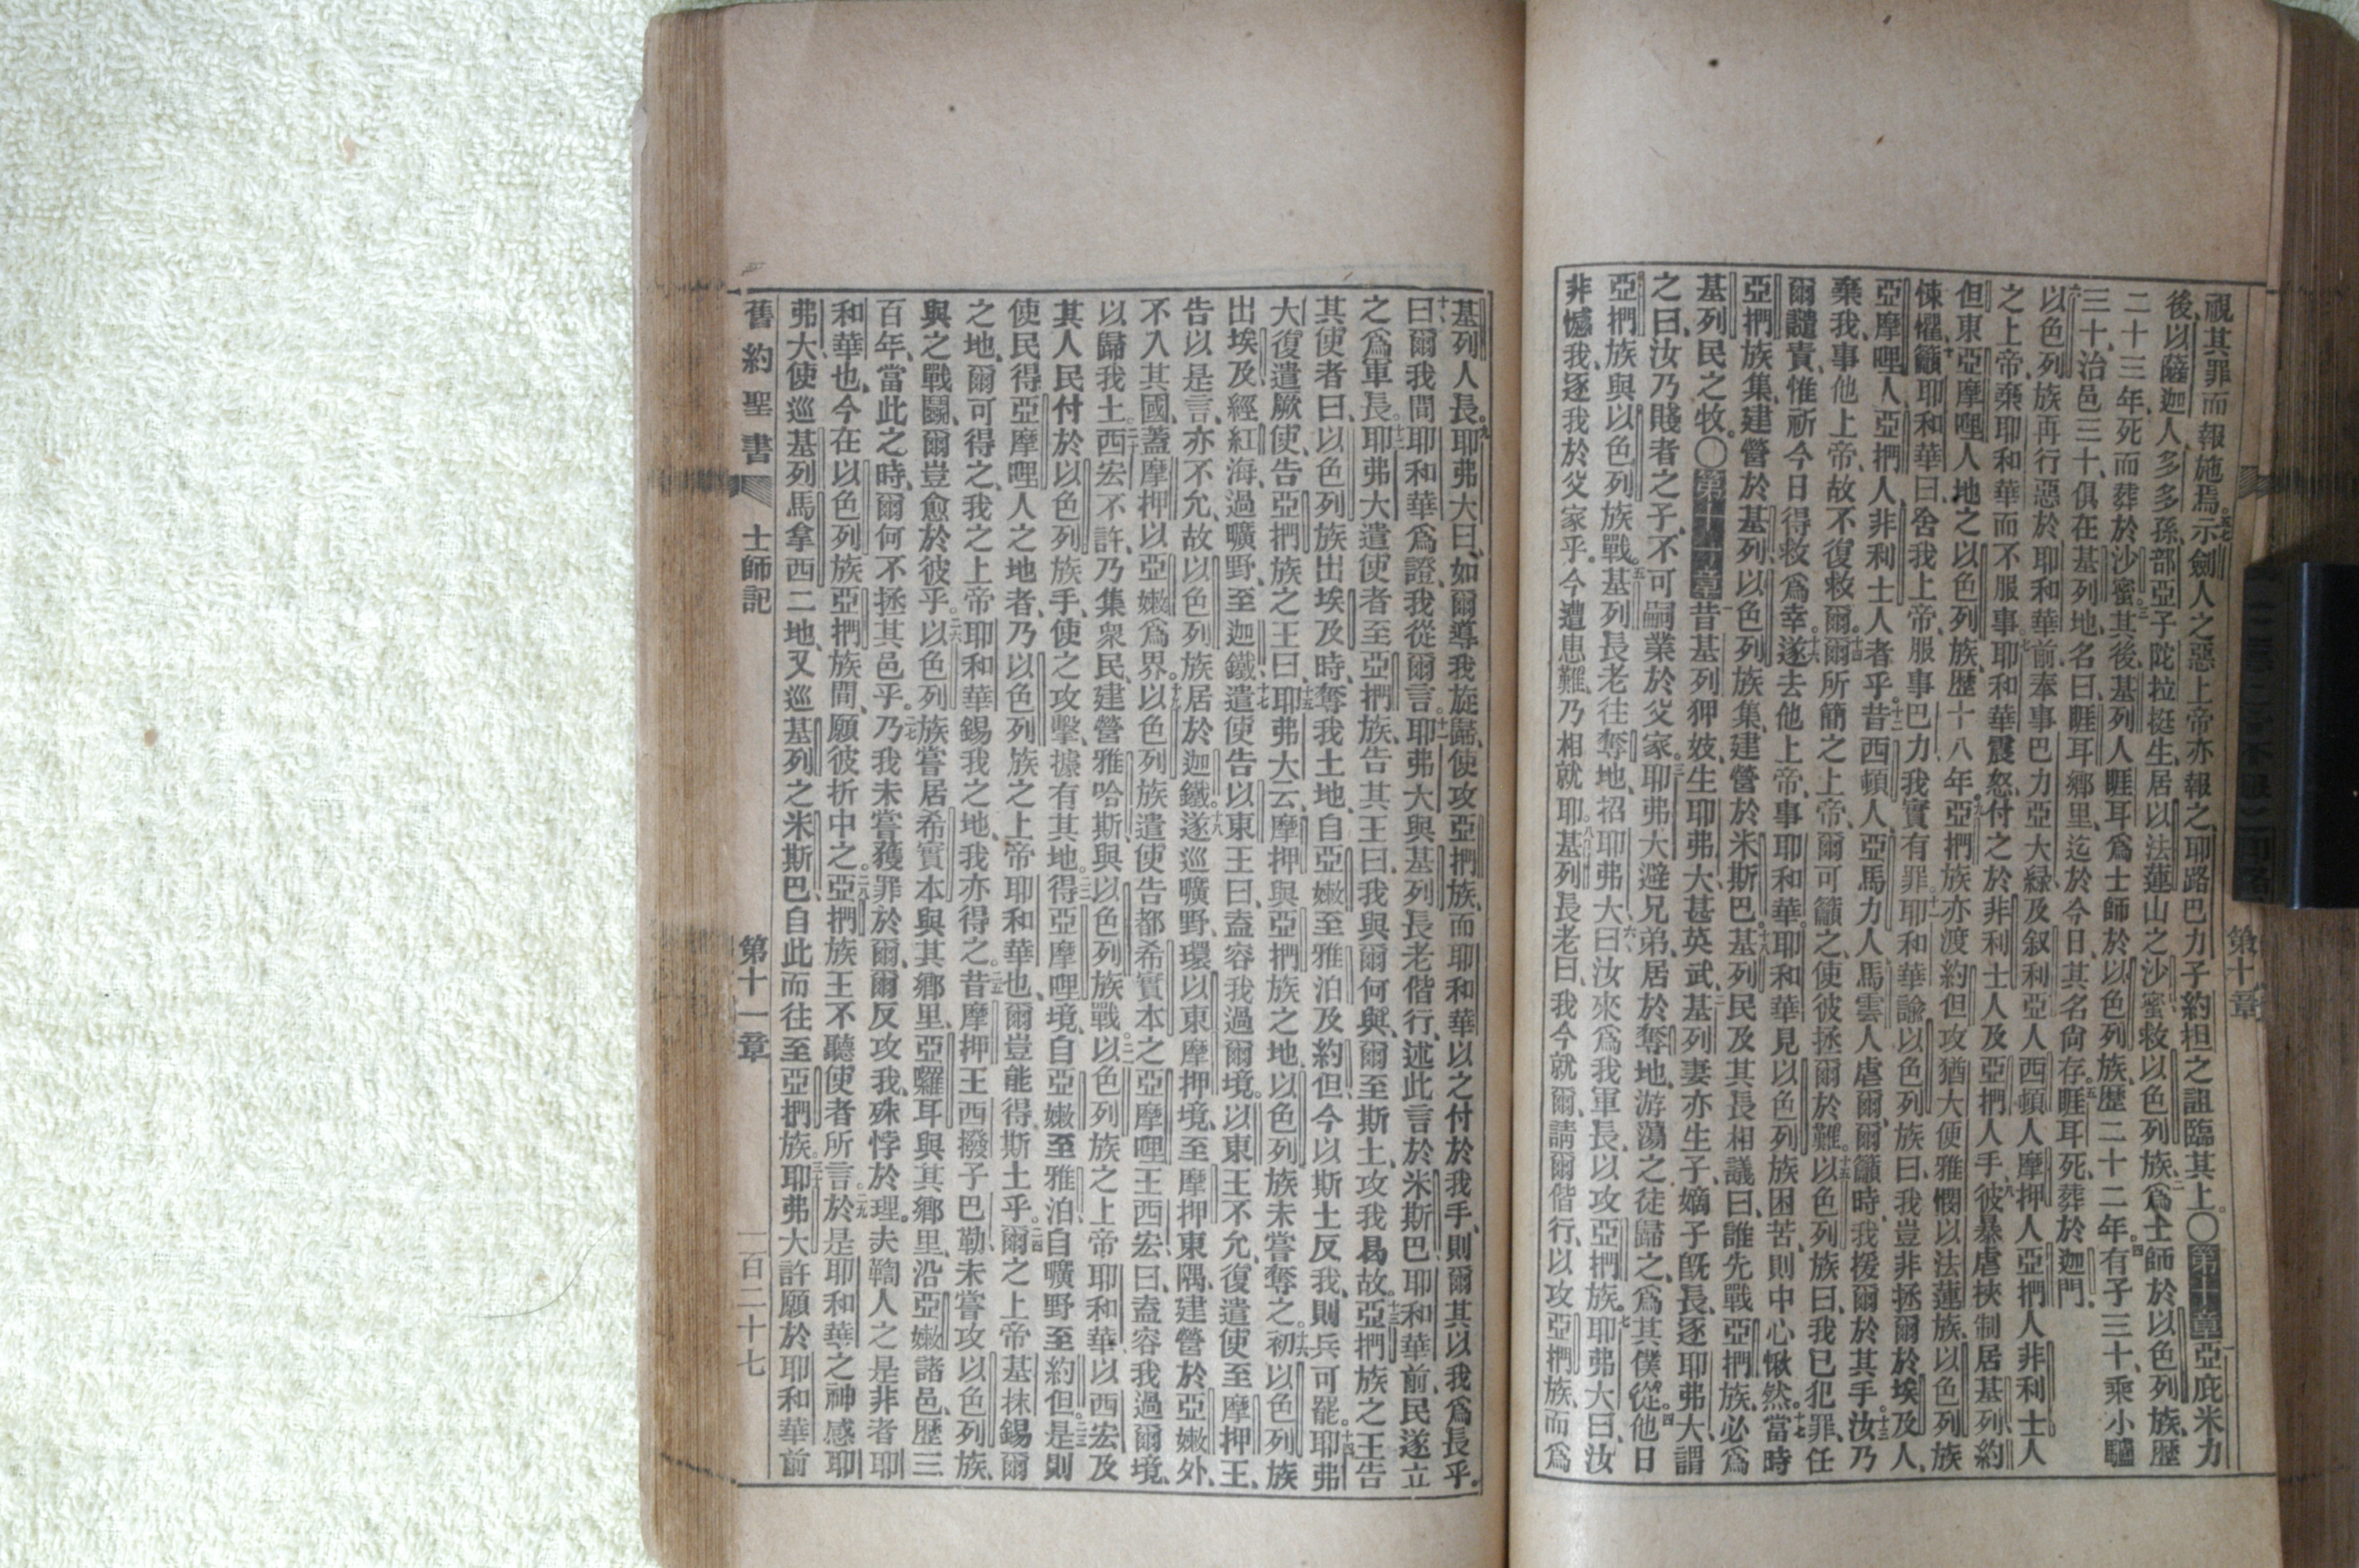 視其罪而報施焉。五七示劍人之惡上帝亦報之、耶路巴力子約担之詛臨其上。〇第十章一亞庇米力
後、以薩迦人多多孫、部亞子陀拉挺生、居以法蓮山之沙蜜、救以色列族。二爲士師於以色列族、歷
二十三年、死而葬於沙蜜。三其後、基列人睚耳爲士師於以色列族、歷二十二年。四有子三十、乘小驢
三十、治邑三十、俱在基列地、名曰睚耳鄉里、迄於今日、其名尙存。五睚耳死、葬於迦門、
六以色列族再行惡於耶和華前、奉事巴力亞大綠、及叙利亞人西頓人摩押人亞捫人非利士人
之上帝、棄耶和華而不服事。七耶和華震怒、付之於非利士人及亞捫人手、八彼暴虐挾制居基列、約
但東亞摩哩人地之以色列族、歷十八年。九亞捫族亦渡約但、攻猶大便雅憫以法蓮族、以色列族
悚懼、十籲耶和華曰、舍我上帝、服事巴力、我實有罪。十一耶和華諭以色列族曰、我豈非拯爾於埃及人、
亞摩哩人、亞捫人、非利士人者乎。十二昔西頓人、亞馬力人、馬雲人虐爾、爾籲時、我援爾於其手。十三汝乃
棄我、事他上帝、故不復救爾。十四爾所簡之上帝、爾可籲之、使彼拯爾於難。十五以色列族曰、我已犯罪、任
爾譴責、惟祈今日得救爲幸。十六遂去他上帝、事耶和華。耶和華見以色列族困苦、則中心愀然。十七當時
亞捫族集、建營於基列、以色列族集、建營於米斯巴。十八基列民及其長相議曰、誰先戰亞捫族、必爲
基列民之牧。〇第十一章一昔基列狎妓、生耶弗大、甚英武、二基列妻亦生子、嫡子旣長、逐耶弗大、謂
之曰、汝乃賤者之子、不可嗣業於父家。三耶弗大避兄弟、居於奪地、游蕩之徒歸之、爲其僕從。四他日
亞捫族與以色列族戰。五基列長老往奪地、招耶弗大曰、六汝來爲我軍長、以攻亞捫族。七耶弗大曰、汝
非憾我、逐我於父家乎。今遭患難、乃相就耶。八基列長老曰、我今就爾、請爾偕行、以攻亞捫族、而爲
第十章
基列人長。九耶弗大曰、如爾導我旋歸、使攻亞捫族、而耶和華以之付於我手、則爾其以我爲長乎。
十曰、爾我間耶和華爲證、我從爾言。十一耶弗大與基列長老偕行、述此言於米斯巴耶和華前、民遂立
之爲軍長。十二耶弗大遣使者至亞捫族、告其王曰、我與爾何與、爾至斯土、攻我曷故。十三亞捫族之王告
其使者曰、以色列族出埃及時、奪我土地、自亞嫩至雅泊及約但、今以斯土反我、則兵可罷。十四耶弗
大復遣厥使、告亞捫族之王曰、十五耶弗大云、摩押與亞捫族之地、以色列族未嘗奪之。十六初以色列族
出埃及、經紅海、過曠野、至迦鐵、十七遣使告以東王曰、盍容我過爾境。以東王不允、復遣使至摩押王、
告以是言、亦不允、故以色列族居於迦鐵。十八遂巡曠野、環以東摩押境、至摩押東隅、建營於亞嫩外、
不入其國、蓋摩押以亞嫩爲界。十九以色列族遣使告都希實本之亞摩哩王西宏曰、盍容我過爾境、
以歸我土。二十西宏不許、乃集衆民、建營雅哈斯、與以色列族戰。二一以色列族之上帝耶和華、以西宏及
其人民付於以色列族手、使之攻擊、據有其地。二二得亞摩哩境、自亞嫩至雅泊、自曠野至約但。二三是則
使民得亞摩哩人之地者、乃以色列族之上帝耶和華也、爾豈能得斯土乎。二四爾之上帝基抹錫爾
之地、爾可得之、我之上帝耶和華錫我之地、我亦得之。二五昔摩押王西撥子巴勒、未嘗攻以色列族、
與之戰鬭、爾豈愈於彼乎。二六以色列族嘗居希實本與其鄉里、亞囉耳與其鄉里、沿亞嫩諸邑、歷三
百年、當此之時、爾何不拯其邑乎。二七乃我未嘗獲罪於爾、爾反攻我、殊悖於理。夫鞫人之是非者耶
和華也、今在以色列族亞捫族間、願彼折中之。二八亞捫族王不聽使者所言。二九於是耶和華之神感耶
弗大、使巡基列馬拿西二地、又巡基列之米斯巴、自此而往至亞捫族。三十耶弗大許願於耶和華前
舊約聖書 士師記 第十一章 一百二十七